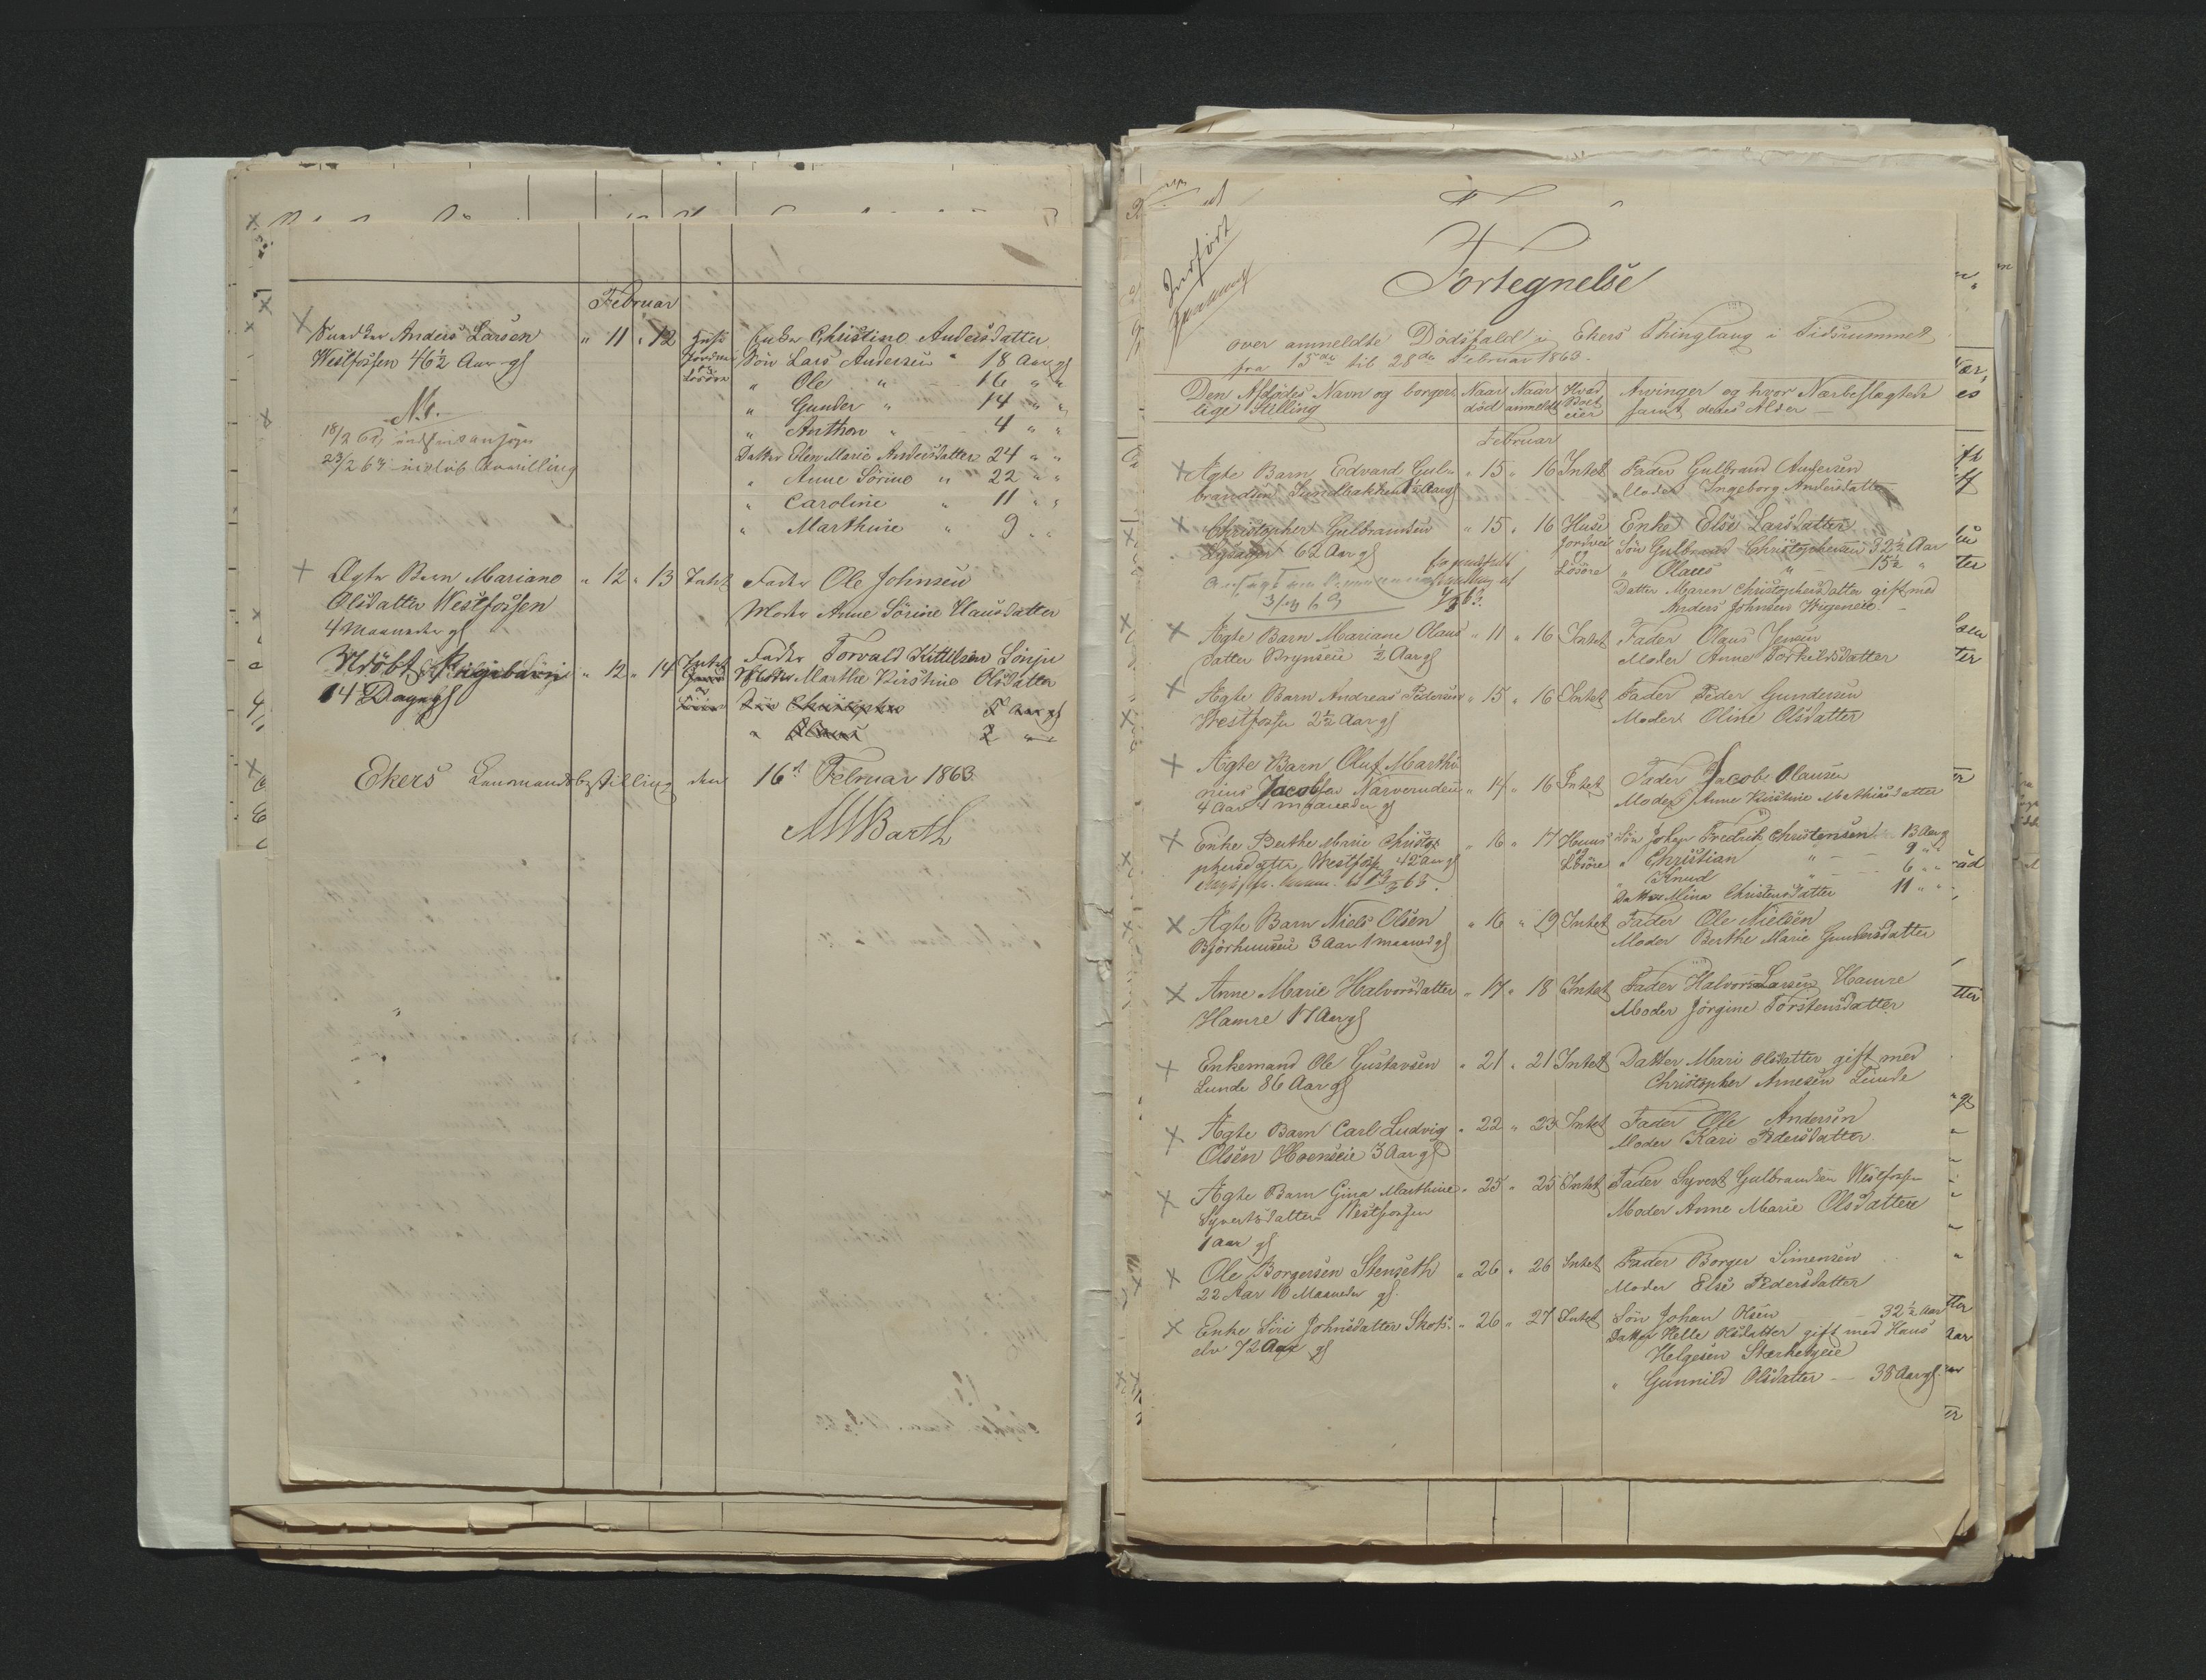 Februar
Anders Larsen " 11 " 12 Enke Christine Andersdatter
Westfossen 46½ Aar gl Søn Lars Andersen 18 Aar gl
Løsøre " Ole " 16 " "
" Gunder " 14 " "
" Anthon " 4 " "
23/2 63
Datter Elen Marie Andersdatter 24 " "
" Anne Sørine " 22 " "
" Caroline " 11 " "
" Marthine " 9 " "
Ægte Barn Mariane " 12 " 13 Intet Fader Ole Johnsen
Olsdatter Westfossen Moder Anne Sørine Clausdatter
4 Maaneder gl
Udøbt Pigebarn " 12 " 14 Intet Fader Torvald Kittelsen
14 Dage gl Moder Marthe Kirstine Olsdatter
Ekers Lensmandsbestilling den 16de Februar 1863
MWBarth
Indført
Fortegnelse
over anmeldte Dødsfald i Ekers Thinglaug i Tidsrummet
fra 15de til 28de Februar 1863.
Den Afdødes Navn og borger- Naar Naar Hvad Arvinger og hvor Nærbeslægtede
lige Stilling død anmeldt Boet eier samt deres Alder —
Februar
Ægte Barn Edvard Gul- " 15 " 16 Intet Fader Gulbrand Andersen
brandsen Sundbakken 1½ Aar gl Moder Ingeborg Andersdatter
Christopher Gulbrandsen " 15 " 16 Huse Enke Else Larsdatter
62 Aar gl Jordvei Søn Gulbrand Christophersen 32½ Aar
og Løsøre " Olaus " — 15½ "
Datter Maren Christophersdatter gift med
Anders Johnsen
Ægte Barn Mariane Olaus- " 11 " 16 Intet Fader Olaus Jensen
datter Brynseie ½ Aar gl Moder Anne Torkildsdatter
Ægte Barn Andreas Pedersen " 15 " 16 Intet Fader Peder Gundersen
Westfossen 2½ Aar gl Moder Oline Olsdatter
Ægte Barn Oluf Marthi-
nius Jacobsen Narverudeie " 14 " 16 Intet Fader Jacob Olausen
4 Aar 4 maaneder gl Moder Anne Kirstine Mathiasdatter
Enke Berthe Marie Christo- " 16 " 17 Huus Søn Johan Fredrik Christensen 13 Aar gl
phersdatter Westfossen 42 Aar gl og Løsøre " Christian " — 9 " "
" Knud " — 6 " "
Datter Mina Christensdatter 11 " "
Ægte Barn Niels Olsen " 16 " 19 Intet Fader Ole Nielsen
Bjørhuuseie 3 Aar 1 maaned gl Moder Berthe Marie Gundersdatter
Anne Marie Halvorsdatter " 17 " 18 Intet Fader Halvor Larsen Hamre
Hamre 17 Aar gl Moder Jørgine Torstensdatter
Enkemand Ole Gustavsen " 21 " 21 Intet Datter Mari Olsdatter gift med
Lunde 86 Aar gl Christopher Arnesen Lunde
Ægte Barn Carl Ludvig " 22 " 23 Intet Fader Ole Andersen
Olsen Hoenseie 3 Aar gl Moder Kari Pedersdatter
Ægte Barn Gina Marthine " 25 " 25 Intet Fader Syvert Gulbrandsen Westfossen
Syvertsdatter Westfossen Moder Anne Marie Olsdatter
1 aar gl
Ole Borgersen Stenseth " 26 " 26 Intet Fader Borger Simensen
22 Aar 10 Maaneder gl. Moder Else Pedersdatter
Enke Siri Johnsdatter Skots- " 26 " 27 Intet Søn Johan Olsen — 32½ Aar
elv 72 Aar gl Datter Helle Olsdatter gift med Hans
Helgesen
" Gunnild Olsdatter — 38 Aar gl.